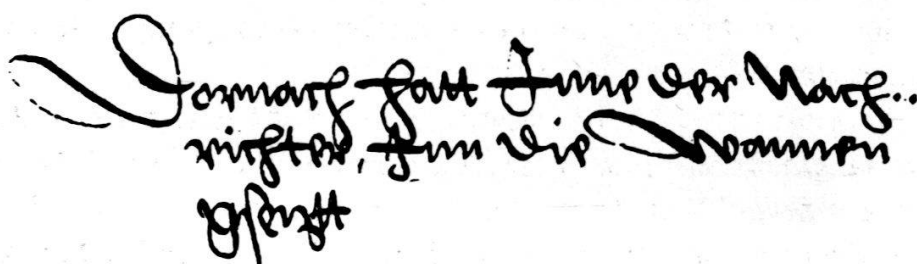 Dornach hatt Inne der Nach..
richter, Inn die Wannen
gsetztt